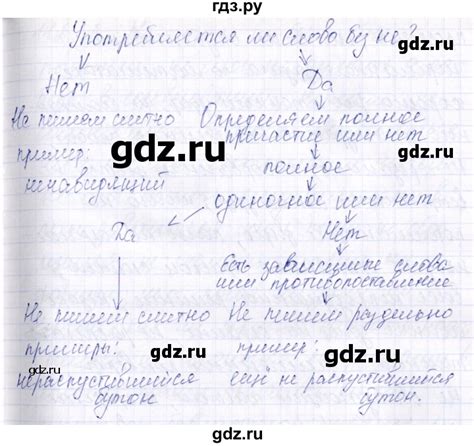 гдз.ру
Употребляется ли слово без не?
Нет
Да
Не пишем слитно
пример:
ненавидящий
Определяем полное
причастие или нет
полное
одиночное или нет
Да
Нет
Не пишем слитно
примеры:
нераспустившийся
бутон.
Есть зависимые слова
или противопоставление
Не пишем раздельно
пример:
ещё не распустившийся
бутон.
gdz.ru
gdz.ru
gdz.ru
gdz.ru
gdz.ru
gdz.ru
gdz.ru
gdz.ru